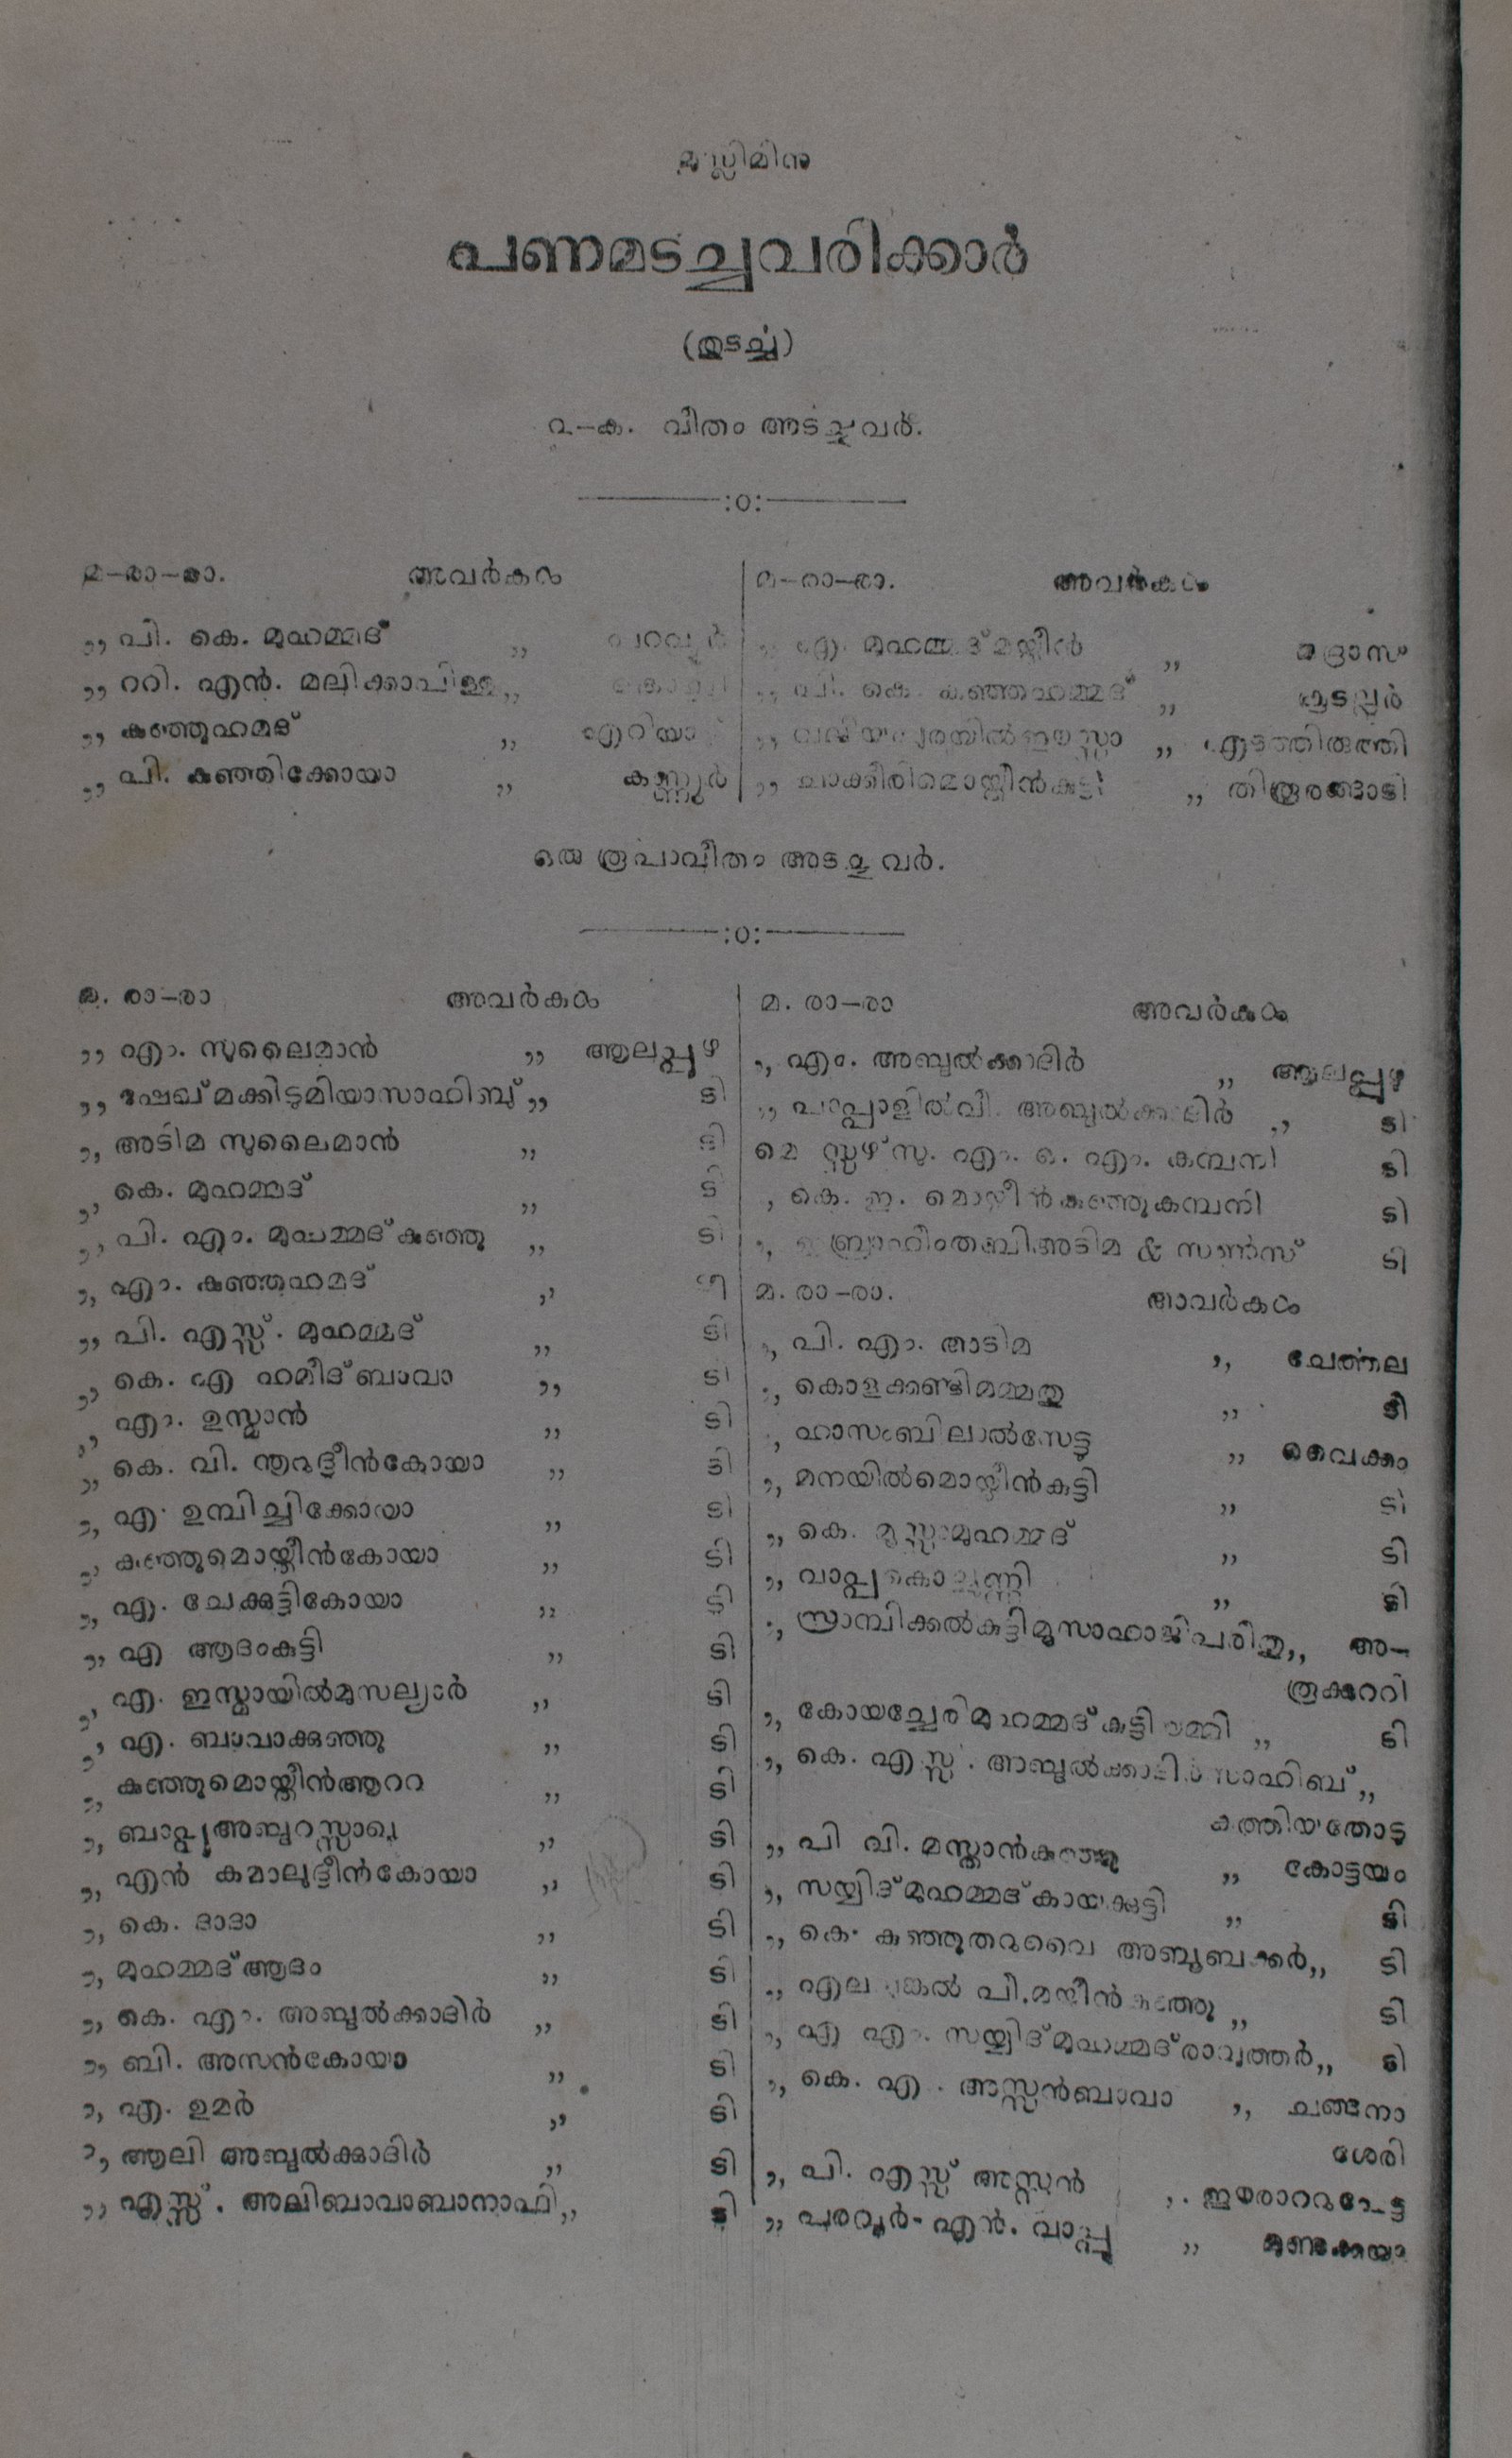 മുസ്ലിമിനു
പണമടച്ചവരിക്കാർ
(തുടൎച്ച)
൨-ക. വീതം അടച്ചവർ.
——:o:——
മ-രാ-രാ. അവർകൾ
,, പി. കെ. മുഹമ്മദ് ,, പറവൂർ
,, ററി. എൻ. മലിക്കാപിള്ള ,,
,, കുഞ്ഞേഹമദ് ,, എറിയാട്
,, പി. കുഞ്ഞിക്കോയാ ,, കണ്ണൂർ
മ-രാ-രാ. അവർകൾ
,, എ. മുഹമ്മദ് മയ്തീൻ ,, മദ്രാസ
,, പി. കെ. കുഞ്ഞഹമ്മദ് ,, കൂടല്ലൂർ
,, ,, എടത്തിരുത്തി
,, ചാക്കീരിമൊയ്തീൻകുട്ടി ,, തിരൂരങ്ങാടി
ഒരു രൂപാവീതം അടച്ചവർ.
——:o:——
മ. രാ-രാ അവർകൾ
,, എം. സുലൈമാൻ ,, ആലപ്പുഴ
,, ഷേഖ് മക്കിടുമിയാസാഹിബു് ,, ടി
,, അടിമ സുലൈമാൻ ,, ടി
,, കെ. മുഹമ്മദ് ,, ടി
,, പി. എം. മുഹമ്മദ് കുഞ്ഞു ,, ടി
,, എം. കുഞ്ഞഹമദ് ,, ടി
,, പി. എസ്സ്. മുഹമ്മദ് ,, ടി
,, കെ. എ ഹമീദ് ബാവാ ,, ടി
,, എം. ഉസ്മാൻ ,, ടി
,, കെ. വി. നൂറുദ്ദീൻകോയാ ,, ടി
,, എ. ഉമ്പിച്ചിക്കോയാ ,, ടി
,, കുഞ്ഞുമൊയ്തീൻകോയാ ,, ടി
,, എ. ചേക്കുട്ടികോയാ ,, ടി
,, എ ആദംകുട്ടി ,, ടി
,, എ. ഇസ്മായിൽമുസല്യാർ ,, ടി
,, എ. ബാവാക്കുഞ്ഞു ,, ടി
,, കുഞ്ഞുമൊയ്തീൻആററ ,, ടി
,, ബാപ്പുഅബ്ദുറസ്സാഖു ,, ടി
,, എൻ കമാലുദ്ദീൻകോയാ ,, ടി
,, കെ. ദാദാ ,, ടി
,, മുഹമ്മദ് ആദം ,, ടി
,, കെ. എം. അബ്ദുൽക്കാദിർ ,, ടി
,, ബി. അസൻകോയാ ,, ടി
,, എ. ഉമർ ,, ടി
,, ആലി അബ്ദുൽക്കാദിർ ,, ടി
,, എസ്സ്. അലിബാവാബാനാഫി ,, ടി
മ. രാ-രാ അവർകൾ
,, എം. അബ്ദുൽക്കാദിർ ,, ആലപ്പുഴ
,, പാപ്പാളിൽവി. അബ്ദുൽക്കാദിർ ,, ടി
മെ സ്സഴ്സു. എം. ഒ. എം. കമ്പനി ടി
,, കെ. ഇ. മൊയ്തീൻകുഞ്ഞുകമ്പനി ടി
,, ഇബ്രാഹിംതമ്പിഅടിമ & സൺസ് ടി
മ. രാ-രാ. അവർകൾ
,, പി. എം. അടിമ ,, ചേൎത്തല
,, കൊളക്കണ്ടിമമ്മതു ,, ടി
,, ഹാസംബിലാൽസേട്ടു ,, വൈക്കം
,, മനയിൽമൊയ്തീൻകുട്ടി ,, ടി
,, കെ. മൂസ്സാമുഹമ്മദ് ,, ടി
,, വാപ്പുകൊച്ചുണ്ണി ,, ടി
,, സ്രാമ്പിക്കൽകുട്ടിമൂസാഹാജിപരിതു ,, അ-
രൂക്കുററി
,, കോയച്ചേരിമുഹമ്മദ് കുട്ടി ,, ടി
,, കെ. എസ്സ്. അബ്ദുൽക്കാദിർസാഹിബ് ,,
കുത്തിയതോടു
,, പി വി. മസ്താൻകുഞ്ഞു ,, കോട്ടയം
,, സയ്യിദ് മുഹമ്മദ് കായിക്കുട്ടി ,, ടി
,, കെ. കുഞ്ഞുതറുവൈ അബൂബക്കർ ,, ടി
,, പി.മയ്തീൻകുഞ്ഞു ,, ടി
,, എ എം. സയ്യിദ് മുഹമ്മദ് രാവുത്തർ ,, ടി
,, കെ. എ. അസ്സൻബാവാ ,, ചങ്ങനാ
ശേരി
,, പി. എസ്സ് അസ്സൻ ,, ഈരാററുപേട്ട
,, പരവൂർ-എൻ. വാപ്പു ,, മുണ്ടക്കയം